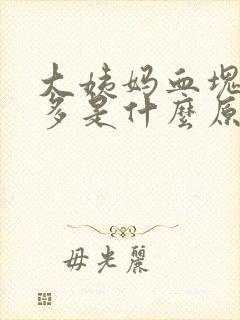 大姨妈血塊
多是什麼原
毋光麗